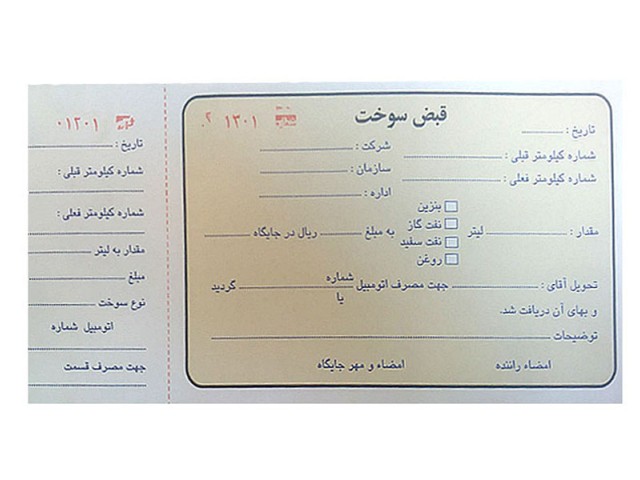 قبض سوخت
۱۳۰۱
تاریخ :
شرکت :
شماره کیلومتر قبلی :
سازمان :
شماره کیلومتر فعلی :
اداره :
بنزین
نفت گاز
نفت سفید
روغن
مقدار : لیتر به مبلغ ریال در جایگاه
تحویل آقای : جهت مصرف اتومبیل شماره یا گردید
و بهای آن دریافت شد.
توضیحات
امضاء راننده امضاء و مهر جایگاه
۰۱۳۰۱
تاریخ :
شماره کیلومتر قبلی :
شماره کیلومتر فعلی :
مقدار به لیتر
مبلغ
نوع سوخت
اتومبیل شماره
جهت مصرف قسمت